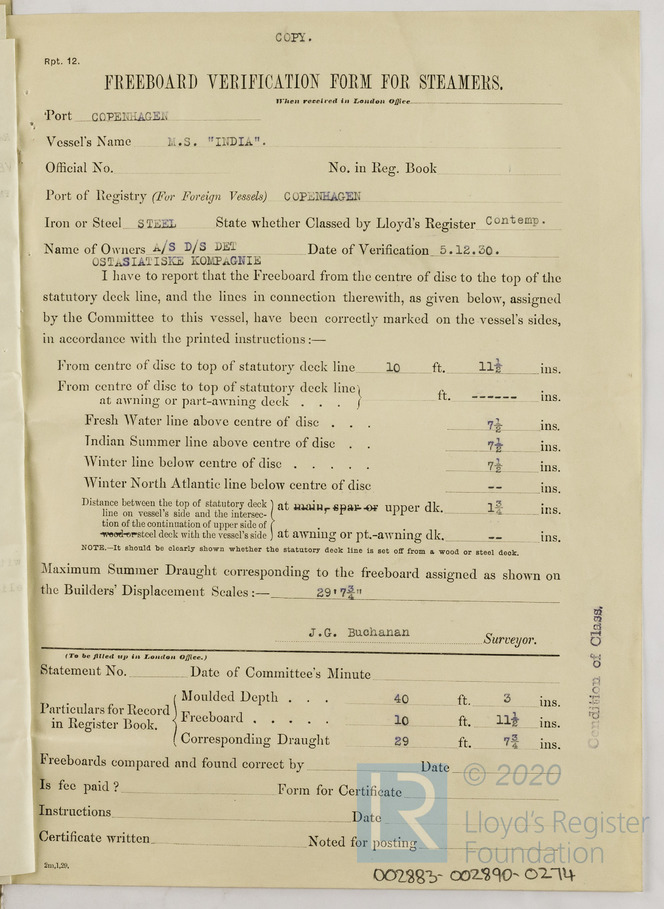 COPY.
Rpt. 12.
FREEBOARD VERIFICATION FORM FOR STEAMERS.
When received in London Office
Port COPENHAGEN
Vessel's Name M.S. "INDIA".
Official No. No. in Reg. Book
Port of Registry (For Foreign Vessels) COPENHAGEN
Iron or Steel STEEL State whether Classed by Lloyd's Register Contemp.
Name of Owners A/S D/S DET Date of Verification 5.12.30.
OSTASIATISKE KOMPAGNIE
I have to report that the Freeboard from the centre of disc to the top of the
statutory deck line, and the lines in connection therewith, as given below, assigned
by the Committee to this vessel, have been correctly marked on the vessel's sides,
in accordance with the printed instructions:—
From centre of disc to top of statutory deck line 10 ft. 11½ ins.
From centre of disc to top of statutory deck line
at awning or part-awning deck . . . ft. ------ ins.
Fresh Water line above centre of disc . . . 7½ ins.
Indian Summer line above centre of disc . . 7½ ins.
Winter line below centre of disc . . . . . 7½ ins.
Winter North Atlantic line below centre of disc -- ins.
Distance between the top of statutory deck
line on vessel's side and the intersec- at main, spar or upper dk. 1¾ ins.
tion of the continuation of upper side of
wood or steel deck with the vessel's side at awning or pt.-awning dk. -- ins.
NOTE.—It should be clearly shown whether the statutory deck line is set off from a wood or steel deck.
Maximum Summer Draught corresponding to the freeboard assigned as shown on
the Builders' Displacement Scales:— 29'7¾"
J.G. Buchanan Surveyor.
Condition of Class.
(To be filled up in London Office.)
Statement No. Date of Committee's Minute
Particulars for Record
in Register Book.
Moulded Depth . . . 40 ft. 3 ins.
Freeboard . . . . . 10 ft. 11½ ins.
Corresponding Draught 29 ft. 7¾ ins.
Freeboards compared and found correct by Date
Is fee paid? Form for Certificate
Instructions Date
Certificate written Noted for posting
2m,1,29.
LR
© 2020
Lloyd's Register
Foundation
002883-002890-0274